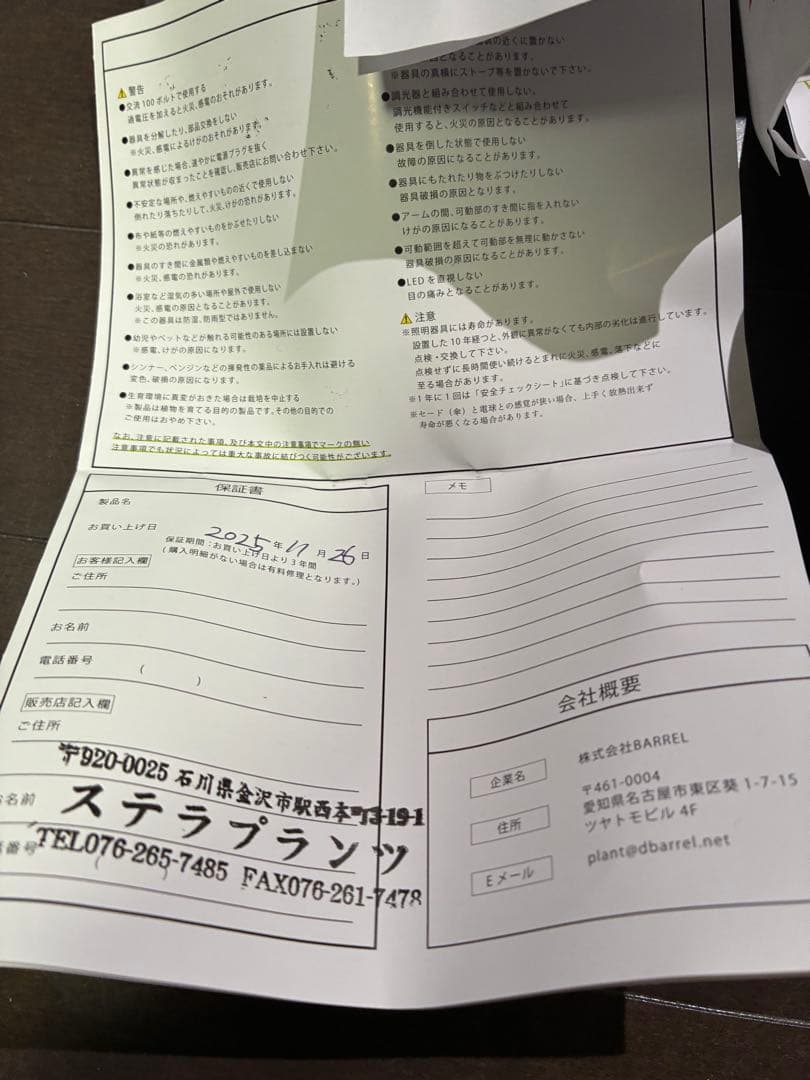 ⚠警告
●交流100ボルトで使用する
過電圧を加えると火災、感電のおそれがあります。
●器具を分解したり、部品交換をしない
※火災、感電によるけがのおそれがあります。
●異常を感じた場合、速やかに電源プラグを抜く
異常状態が収まったことを確認し、販売店にお問い合わせ下さい。
●不安定な場所や、燃えやすいものの近くで使用しない
倒れたり落ちたりして、火災、けがの恐れがあります。
●布や紙等の燃えやすいものをかぶせたりしない
※火災の恐れがあります。
●器具のすき間に金属類や燃えやすいものを差し込まない
※火災、感電の恐れがあります。
●浴室など湿気の多い場所や屋外で使用しない
火災、感電の原因となることがあります。
※この器具は防湿、防雨型ではありません。
●幼児やペットなどが触れる可能性のある場所には設置しない
※感電、けがの原因になります。
●シンナー、ベンジンなどの揮発性の薬品によるお手入れは避ける
変色、破損の原因になります。
●生育環境に異変がおきた場合は栽培を中止する
※製品は植物を育てる目的の製品です。その他の目的での
ご使用はおやめ下さい。
なお、注意に記載された事項、及び本文中の注意事項でマークの無い
注意事項でも状況によっては重大な事故に結びつく可能性がございます。
の近くに置かない
原因となることがあります。
※器具の真横にストーブ等を置かないで下さい。
●調光器と組み合わせて使用しない、
調光機能付きスイッチなどと組み合わせて
使用すると、火災の原因となることがあります。
●器具を倒した状態で使用しない
故障の原因になることがあります。
●器具にもたれたり物をぶつけたりしない
器具破損の原因となります。
●アームの間、可動部のすき間に指を入れない
けがの原因になることがあります。
●可動範囲を超えて可動部を無理に動かさない
器具破損の原因になることがあります。
●LEDを直視しない
目の痛みとなることがあります。
⚠注意
※照明器具には寿命があります。
設置した10年経つと、外観に異常がなくても内部の劣化は進行しています。
点検・交換して下さい。
点検せずに長時間使い続けるとまれに火災、感電、落下などに
至る場合があります。
※1年に1回は「安全チェックシート」に基づき点検して下さい。
※セード(傘)と電球との感覚が狭い場合、上手く放熱出来ず
寿命が悪くなる場合があります。
保証書
製品名
お買い上げ日 2025年11月26日
保証期間:お買い上げ日より3年間
(購入明細がない場合は有料修理となります。)
お客様記入欄
ご住所
お名前
電話番号 ( )
販売店記入欄
ご住所
〒920-0025 石川県金沢市駅西本町3-19-1
お名前 ステラプランツ
番号 ( )
TEL076-265-7485 FAX076-261-7478
メモ
会社概要
企業名 株式会社BARREL
住所 〒461-0004
愛知県名古屋市東区葵1-7-15
ツヤトモビル 4F
Eメール plant@dbarrel.net